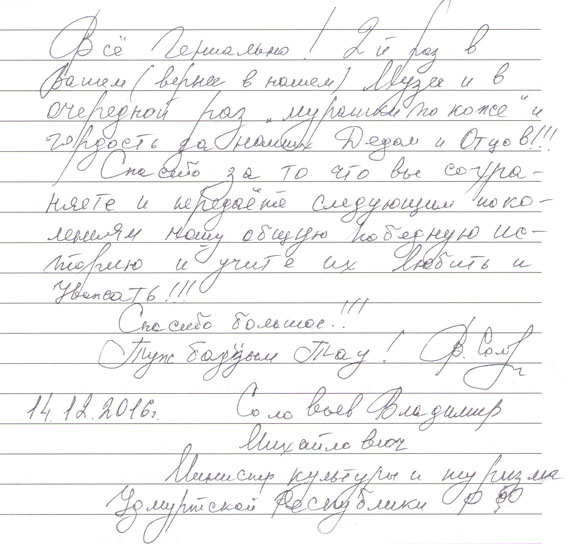 Всё Гениально! 2й раз в
Вашем (вернее в нашем) Музее и в
очередной раз „мурашки по коже" и
гордость за наших Дедов и Отцов!!!
Спасибо за то что вы сохра-
няете и передаёте следующим поко-
лениям нашу общую победную ис-
торию и учите их Любить и
Уважать!!!
Спасибо большое!!!
Туж бадӟым Тау! В. Сол
14.12.2016г. Соловьев Владимир
Михайлович
Министр культуры и туризма
Удмуртской Республики